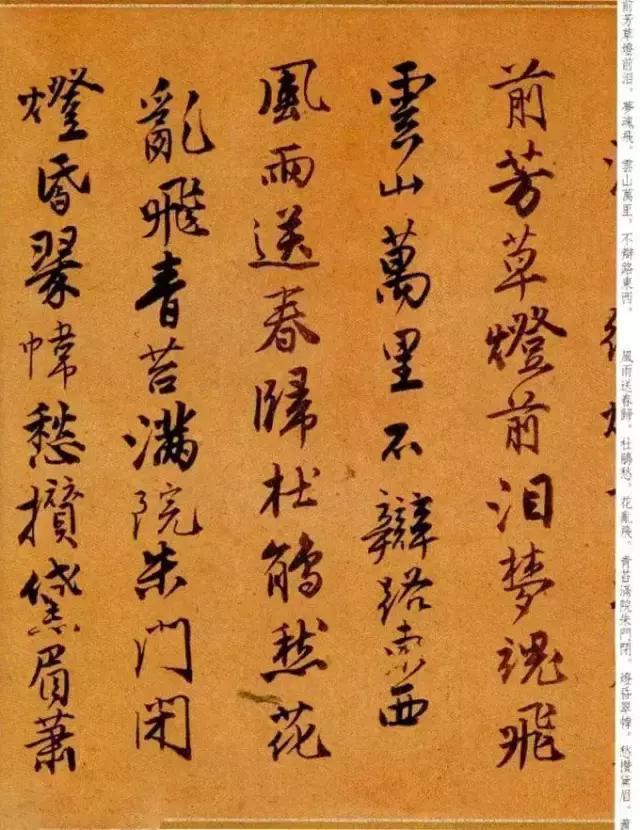 前芳草燈前泪。夢魂飛。雲山萬里。不辯路東西。 風雨送春歸。杜鵑愁。花亂飛。青苔滿院朱門閉。燈昏翠幃。愁攢黛眉。蕭
前芳草燈前泪夢魂飛
雲山萬里不辯路東西
風雨送春歸杜鵑愁花
亂飛青苔滿院朱門閉
燈昏翠幃愁攢黛眉蕭